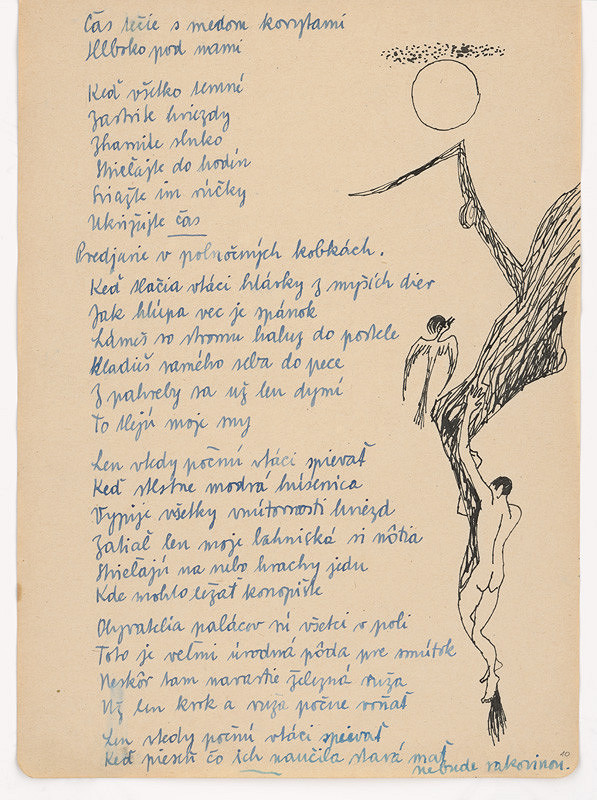 Čas tečie s medom korytami
Hlboko pod nami
Keď všetko temné
Zastrite hviezdy
Zhasnite slnko
Strieľajte do hodín
Sviažte im rúčky
Ukrižujte čas
v polnočných kobkách.
Keď tlačia vtáci hlávky z myších dier
Jak hlúpa vec je spánok
Lámeš zo stromu haluz do postele
Kladieš samého seba do pece
Z pahreby sa už len dymí
To tlejú moje sny
Len vtedy počnú vtáci spievať
Keď modrá húsenica
Vypije všetky vnútornosti hviezd
Zatiaľ len moje si nôtia
Strieľajú na nebo hrachy jedu
Kde mohlo ležať konopište
Obyvatelia palácov sú všetci v poli
Toto je veľmi úrodná pôda pre smútok
Neskôr tam narastie železná ruža
Už len krok a ruža počne voňať
Len vtedy počnú vtáci spievať
Keď pieseň čo ich naučila stará mať
nebude rakovinou.
10